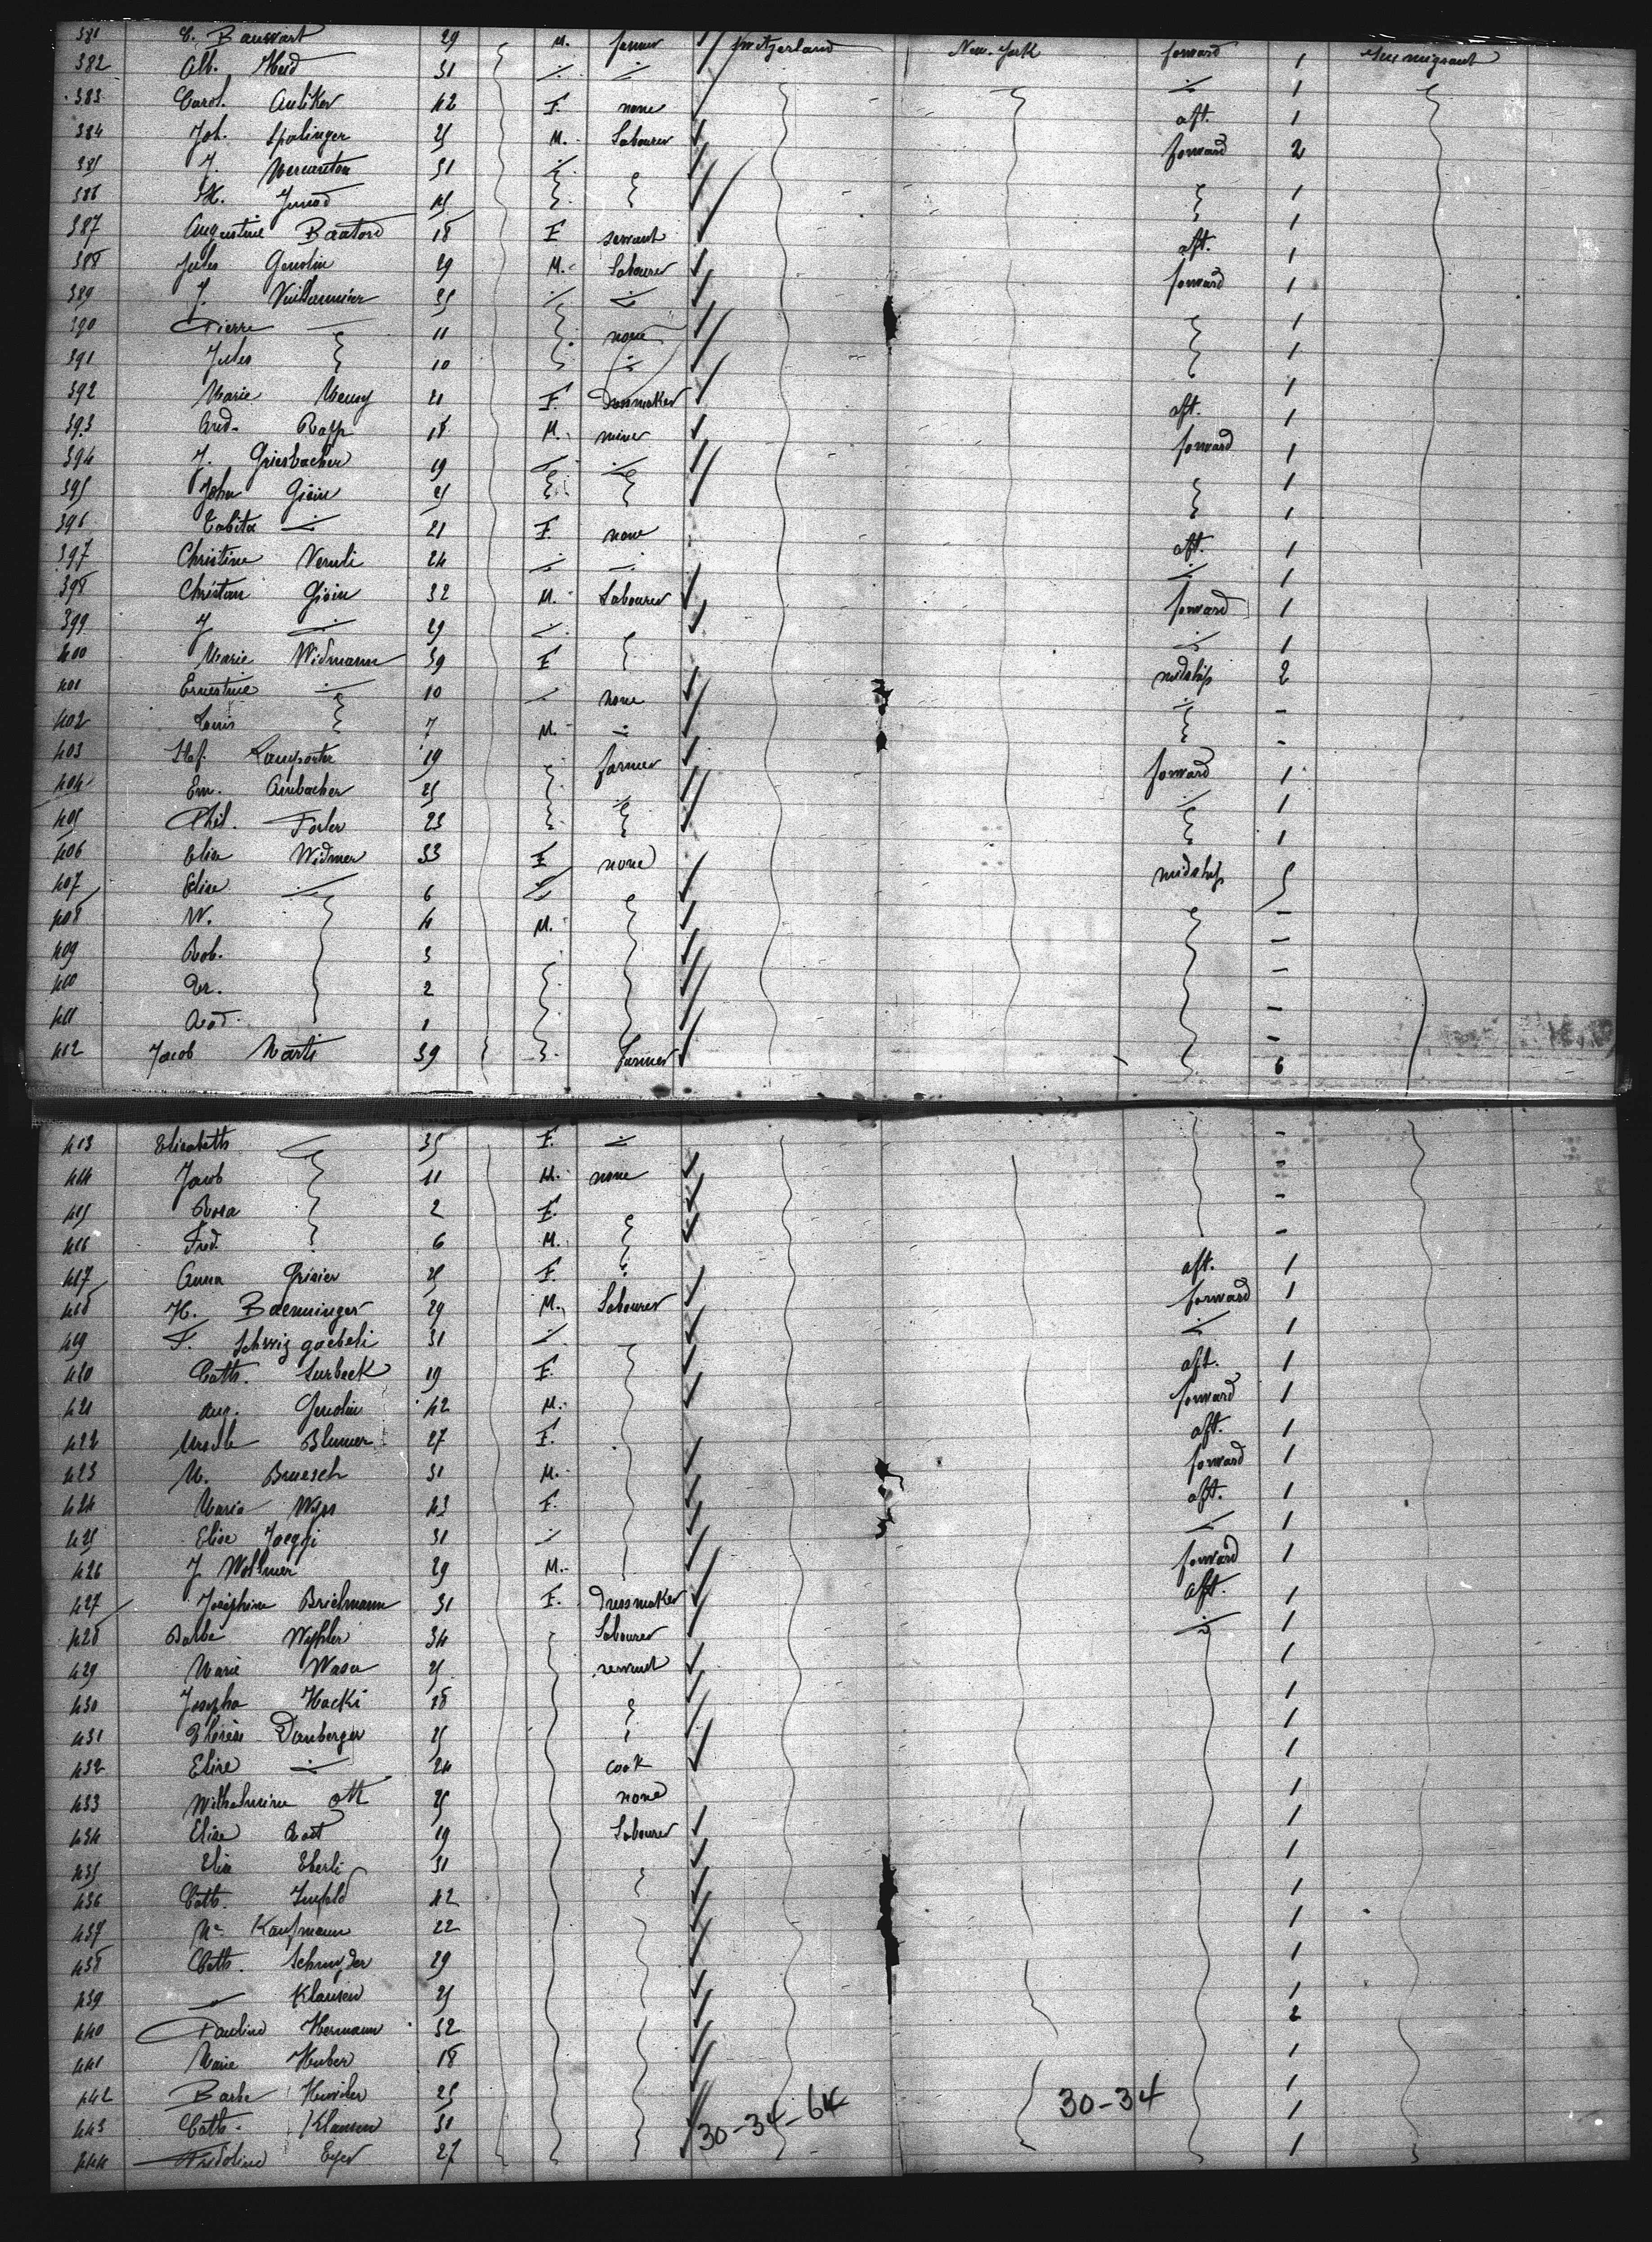 381 C. Bauwart 29 M. farmer Switzerland New-York forward 1 Immigrant
382 Alb. Heid 31 1
383 Carol. Auliker 42 F. none aft. 1
384 Joh. Spalinger 25 M. Labourer forward 2
385 J. 31 1
386 H. Junod 1
387 Augustine 18 F servant aft. 1
388 Jules Gendlin 29 M. Labourer forward 1
389 J. Vuilleumier 35 1
390 Pierre 11 none 1
391 Jules 10 1
392 Marie 21 F. Dressmaker aft. 1
393 And. 18 M. miner forward 1
394 J. Griesbacher 19 1
395 John Gisin 25 1
396 21 F. none aft. 1
397 Christine 24 1
398 Christan Gisin 32 M. Labourer forward 1
399 J 29 1
400 Marie Widmann 39 F midship 2
401 Ernestine 10 none -
402 Louis 7 M. -
403 Stef. 19 farmer forward 1
404 Em. Ambacher 25 1
405 Phil. Forler 23 1
406 Elise Widmer 33 F none midship 5
407 Elise 6 -
408 W. 4 M. -
409 Rob. 3 -
410 2 -
411 1 -
412 Jacob Marti 39 farmer 6
413 Elisabeth 35 F. -
414 Jacob 11 M. none -
415 Rosa 2 F. -
416 Fred. 6 M. -
417 Anna Grisier 25 F. aft. 1
418 H. Baenninger 29 M. Labourer forward 1
419 F. Schwizgaebeli 31 1
420 Cath. Surbeck 19 F. aft. 1
421 Aug. Gendlin 42 M. forward 1
422 Ursule Blumer 27 F. aft. 1
423 M. Bruesch 31 M. forward 1
424 Maria Wyss 43 F. aft. 1
425 Elise Jaeggi 31 1
426 J Wollmer 29 M. forward 1
427 Josephine Brielmann 31 F. Dressmaker aft. 1
428 Barbe Wyssler 34 Labourer 1
429 Marie Waser 25 servant 1
430 Josepha Hacki 18 1
431 Danberger 25 1
432 Elise 24 cook 1
433 Wilhelmine Ott 25 none 1
434 Elise 19 Labourer 1
435 Elise Eberli 31 1
436 Cath. 42 1
437 Kaufmann 22 1
438 Cath. Schnyder 29 1
439 Klausen 25 1
440 Pauline Hermann 32 2
441 Marie Huber 18 1
442 Barbe 25 1
443 Cath. Klausen 31 1
444 Fridoline Eyer 27 1
30-34-64 30-34